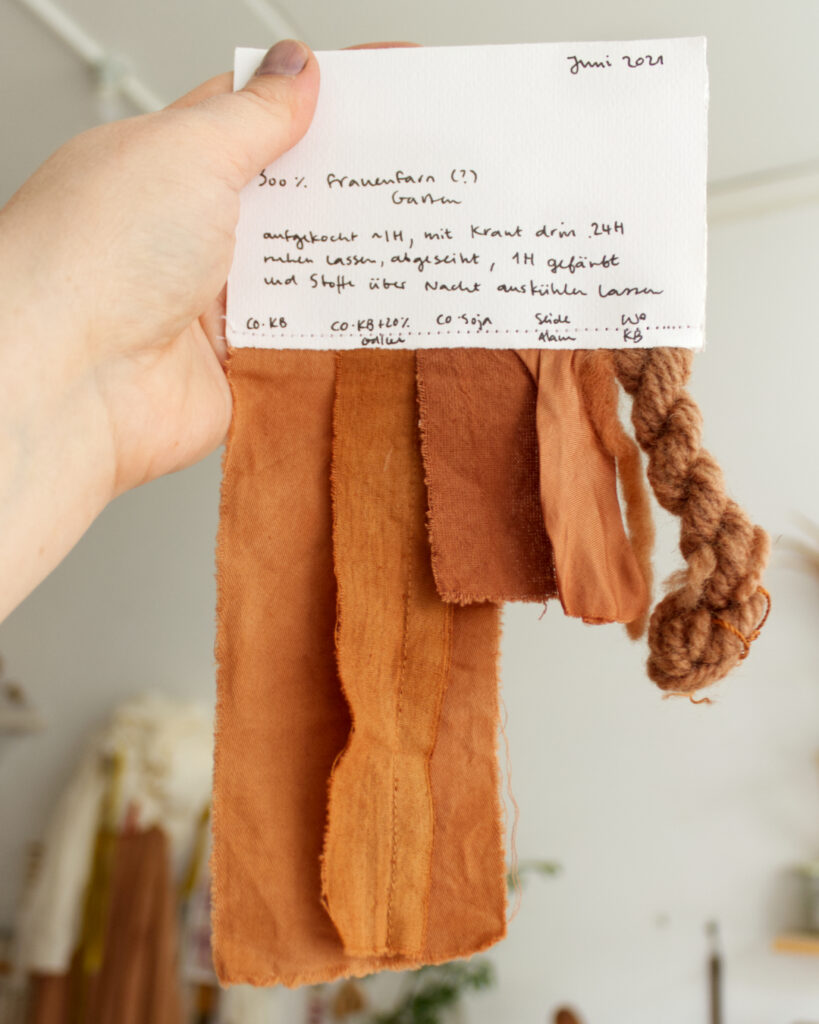 Juni 2021
300% Frauenfarn (?)
Garten
aufgekocht ~1H, mit Kraut drin 24H
ruhen lassen, abgeseiht, 1H gefärbt
und Stoffe über Nacht auskühlen lassen
CO·KB CO·KB+20% CO·Soja Seide Wo
Alaun KB